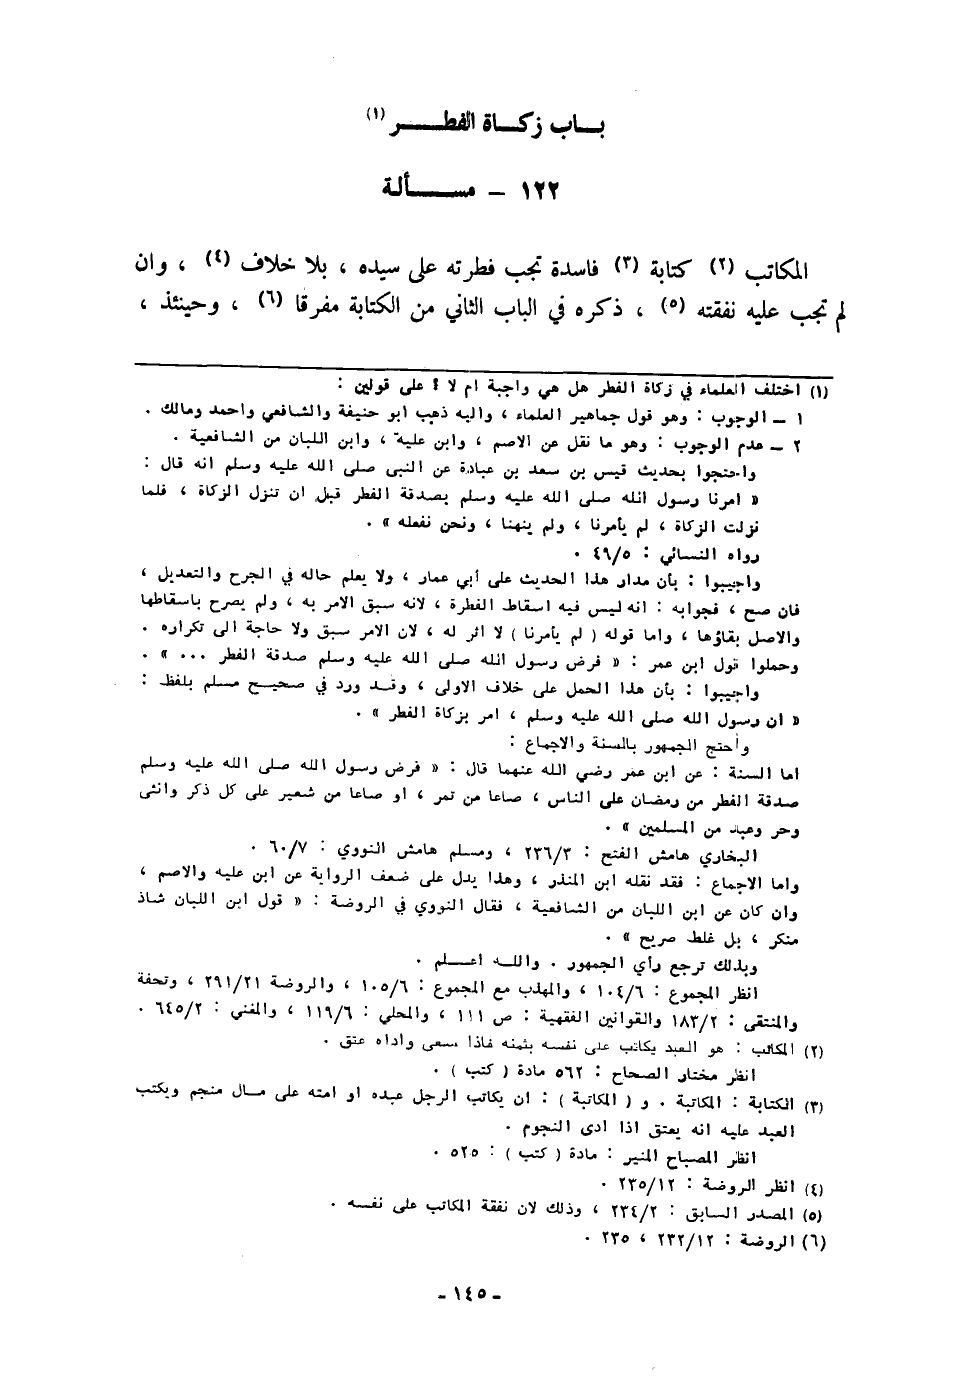 بـــاب زكـــاة الفطـــــر (١)
١٢٢ – مســـــألة
المكاتب (٢) كتابة (٣) فاسدة تجب فطرته على سيده ، بلا خلاف (٤) ، وان
لم تجب عليه نفقته (٥) ، ذكره في الباب الثاني من الكتابة مفرقا (٦) ، وحينئذ ،
(١) اختلف العلماء في زكاة الفطر هل هي واجبة ام لا ؟ على قولين :
١ – الوجوب : وهو قول جماهير العلماء ، واليه ذهب ابو حنيفة والشافعي واحمد ومالك .
٢ – عدم الوجوب : وهو ما نقل عن الاصم ، وابن علية ، وابن اللبان من الشافعية .
واحتجوا بحديث قيس بن سعد بن عبادة عن النبى صلى الله عليه وسلم انه قال :
« امرنا رسول الله صلى الله عليه وسلم بصدقة الفطر قبل ان تنزل الزكاة ، فلما
نزلت الزكاة ، لم يأمرنا ، ولم ينهنا ، ونحن نفعله » .
رواه النسائي : ٤٩/٥ .
واجيبوا : بأن مدار هذا الحديث على أبي عمار ، ولا يعلم حاله في الجرح والتعديل ،
فان صح ، فجوابه : انه ليس فيه اسقاط الفطرة ، لانه سبق الامر به ، ولم يصرح باسقاطها
والاصل بقاؤها ، واما قوله ( لم يأمرنا ) لا اثر له ، لان الامر سبق ولا حاجة الى تكراره .
وحملوا قول ابن عمر : « فرض رسول الله صلى الله عليه وسلم صدقة الفطر ... » .
واجيبوا : بأن هذا الحمل على خلاف الاولى ، وقـد ورد في صحيـح مسلم بلفظ :
« ان رسول الله صلى الله عليه وسلم ، امر بزكاة الفطر » .
وأحتج الجمهور بالسنة والاجماع :
اما السنة : عن ابن عمر رضي الله عنهما قال : « فرض رسول الله صلى الله عليه وسلم
صدقة الفطر من رمضان على الناس ، صاعا من تمر ، او صاعا من شعير على كل ذكر وانثى
وحر وعبد من المسلمين » .
البخاري هامش الفتح : ٢٣٦/٣ ، ومسلم هامش النووي : ٦٠/٧ .
واما الاجماع : فقد نقله ابن المنذر ، وهذا يدل على ضعف الرواية عن ابن عليه والاصم ،
وان كان عن ابن اللبان من الشافعية ، فقال النووي في الروضة : « قول ابن اللبان شاذ
منكر ، بل غلط صريح » .
وبذلك ترجع رأي الجمهور . واللـه اعـــلم .
انظر المجموع : ١٠٤/٦ ، والمهذب مع المجموع : ١٠٥/٦ ، والروضة ٢٩١/٢١ ، وتحفة
والمنتقى : ١٨٣/٢ والقوانين الفقهية : ص ١١١ ، والمحلي : ١١٩/٦ ، والمغني : ٦٤٥/٢ .
(٢) المكاتب : هو العبد يكاتب على نفسه بثمنه فاذا سعى واداه عتق .
انظر مختار الصحاح : ٥٦٢ مادة ( كتب ) .
(٣) الكتابة : المكاتبة . و ( المكاتبة ) : ان يكاتب الرجل عبده او امته على مـال منجم ويكتب
العبد عليه انه يعتق اذا ادى النجوم .
انظر المصباح المنير : مادة ( كتب ) : ٥٢٥ .
(٤) انظر الروضة : ٢٣٥/١٢ .
(٥) المصدر السابق : ٢٣٤/٢ ، وذلك لان نفقة المكاتب على نفسه .
(٦) الروضة : ٢٣٢/١٢ ، ٢٣٥ .
– ١٤٥ –